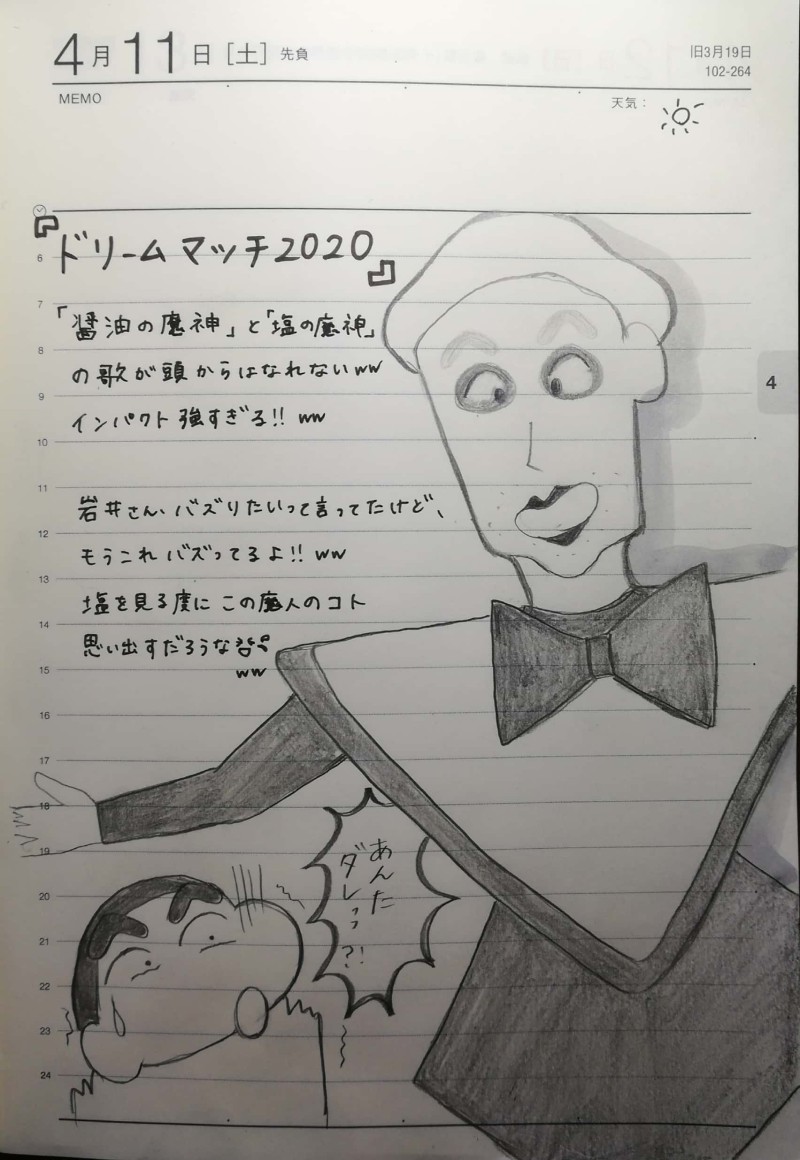 4月11日［土］先負
旧3月19日
102-264
MEMO
天気：
『ドリームマッチ2020』
「醤油の魔神」と「塩の魔神」
の歌が頭からはなれないww
インパクト強すぎる!! ww
岩井さん、バズりたいって言ってたけど、
もうこれバズってるよ!! ww
塩を見る度にこの魔人のコト
思い出すだろうな
ww
あんた
ダレっっ?!
4
6
7
8
9
10
11
12
13
14
15
16
17
18
19
20
21
22
23
24